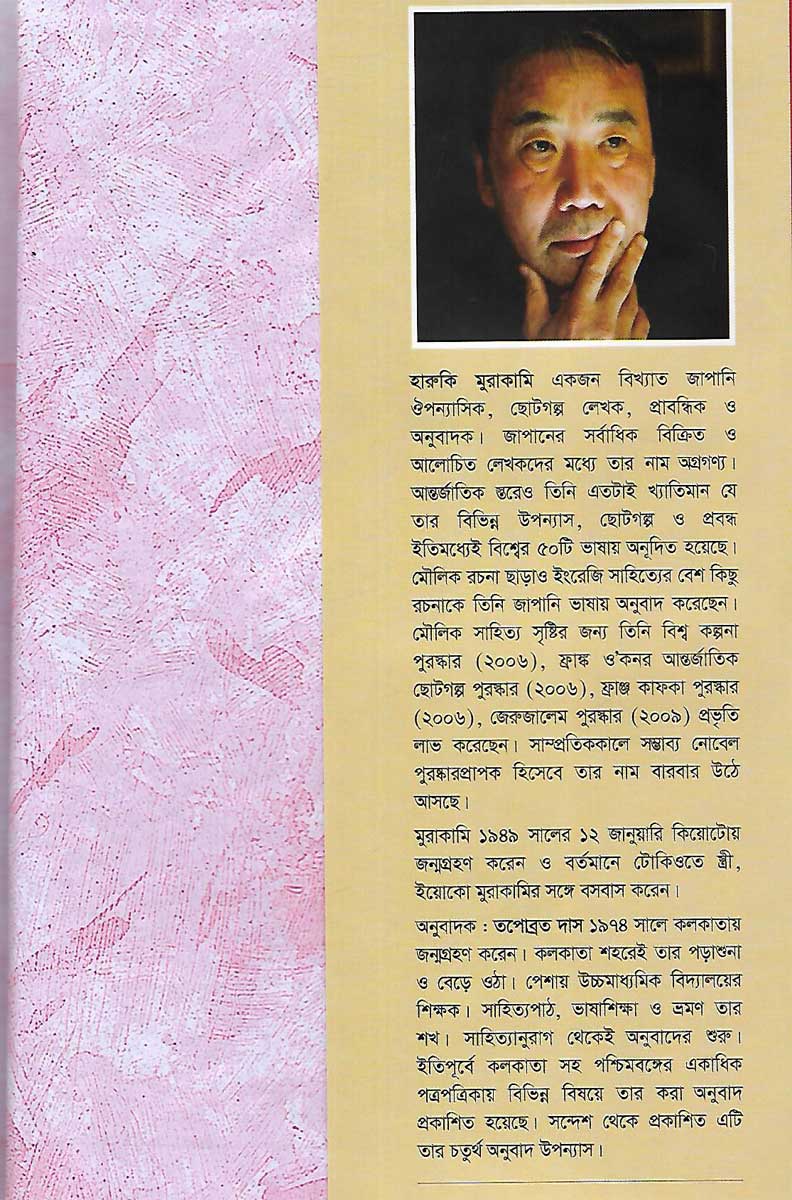 হারুকি মুরাকামি একজন বিখ্যাত জাপানি
ঔপন্যাসিক, ছোটগল্প লেখক, প্রাবন্ধিক ও
অনুবাদক। জাপানের সর্বাধিক বিক্রিত ও
আলোচিত লেখকদের মধ্যে তার নাম অগ্রগণ্য।
আন্তর্জাতিক স্তরেও তিনি এতটাই খ্যাতিমান যে
তার বিভিন্ন উপন্যাস, ছোটগল্প ও প্রবন্ধ
ইতিমধ্যেই বিশ্বের ৫০টি ভাষায় অনূদিত হয়েছে।
মৌলিক রচনা ছাড়াও ইংরেজি সাহিত্যের বেশ কিছু
রচনাকে তিনি জাপানি ভাষায় অনুবাদ করেছেন।
মৌলিক সাহিত্য সৃষ্টির জন্য তিনি বিশ্ব কল্পনা
পুরস্কার (২০০৬), ফ্রাঙ্ক ও'কনর আন্তর্জাতিক
ছোটগল্প পুরস্কার (২০০৬), ফ্রাঞ্জ কাফকা পুরস্কার
(২০০৬), জেরুজালেম পুরস্কার (২০০৯) প্রভৃতি
লাভ করেছেন। সাম্প্রতিককালে সম্ভাব্য নোবেল
পুরষ্কারপ্রাপক হিসেবে তার নাম বারবার উঠে
আসছে।
মুরাকামি ১৯৪৯ সালের ১২ জানুয়ারি কিয়োটোয়
জন্মগ্রহণ করেন ও বর্তমানে টোকিওতে স্ত্রী,
ইয়োকো মুরাকামির সঙ্গে বসবাস করেন।
অনুবাদক : তপোব্রত দাস ১৯৭৪ সালে কলকাতায়
জন্মগ্রহণ করেন। কলকাতা শহরেই তার পড়াশুনা
ও বেড়ে ওঠা। পেশায় উচ্চমাধ্যমিক বিদ্যালয়ের
শিক্ষক। সাহিত্যপাঠ, ভাষাশিক্ষা ও ভ্রমণ তার
শখ। সাহিত্যানুরাগ থেকেই অনুবাদের শুরু।
ইতিপূর্বে কলকাতা সহ পশ্চিমবঙ্গের একাধিক
পত্রপত্রিকায় বিভিন্ন বিষয়ে তার করা অনুবাদ
প্রকাশিত হয়েছে। সন্দেশ থেকে প্রকাশিত এটি
তার চতুর্থ অনুবাদ উপন্যাস।